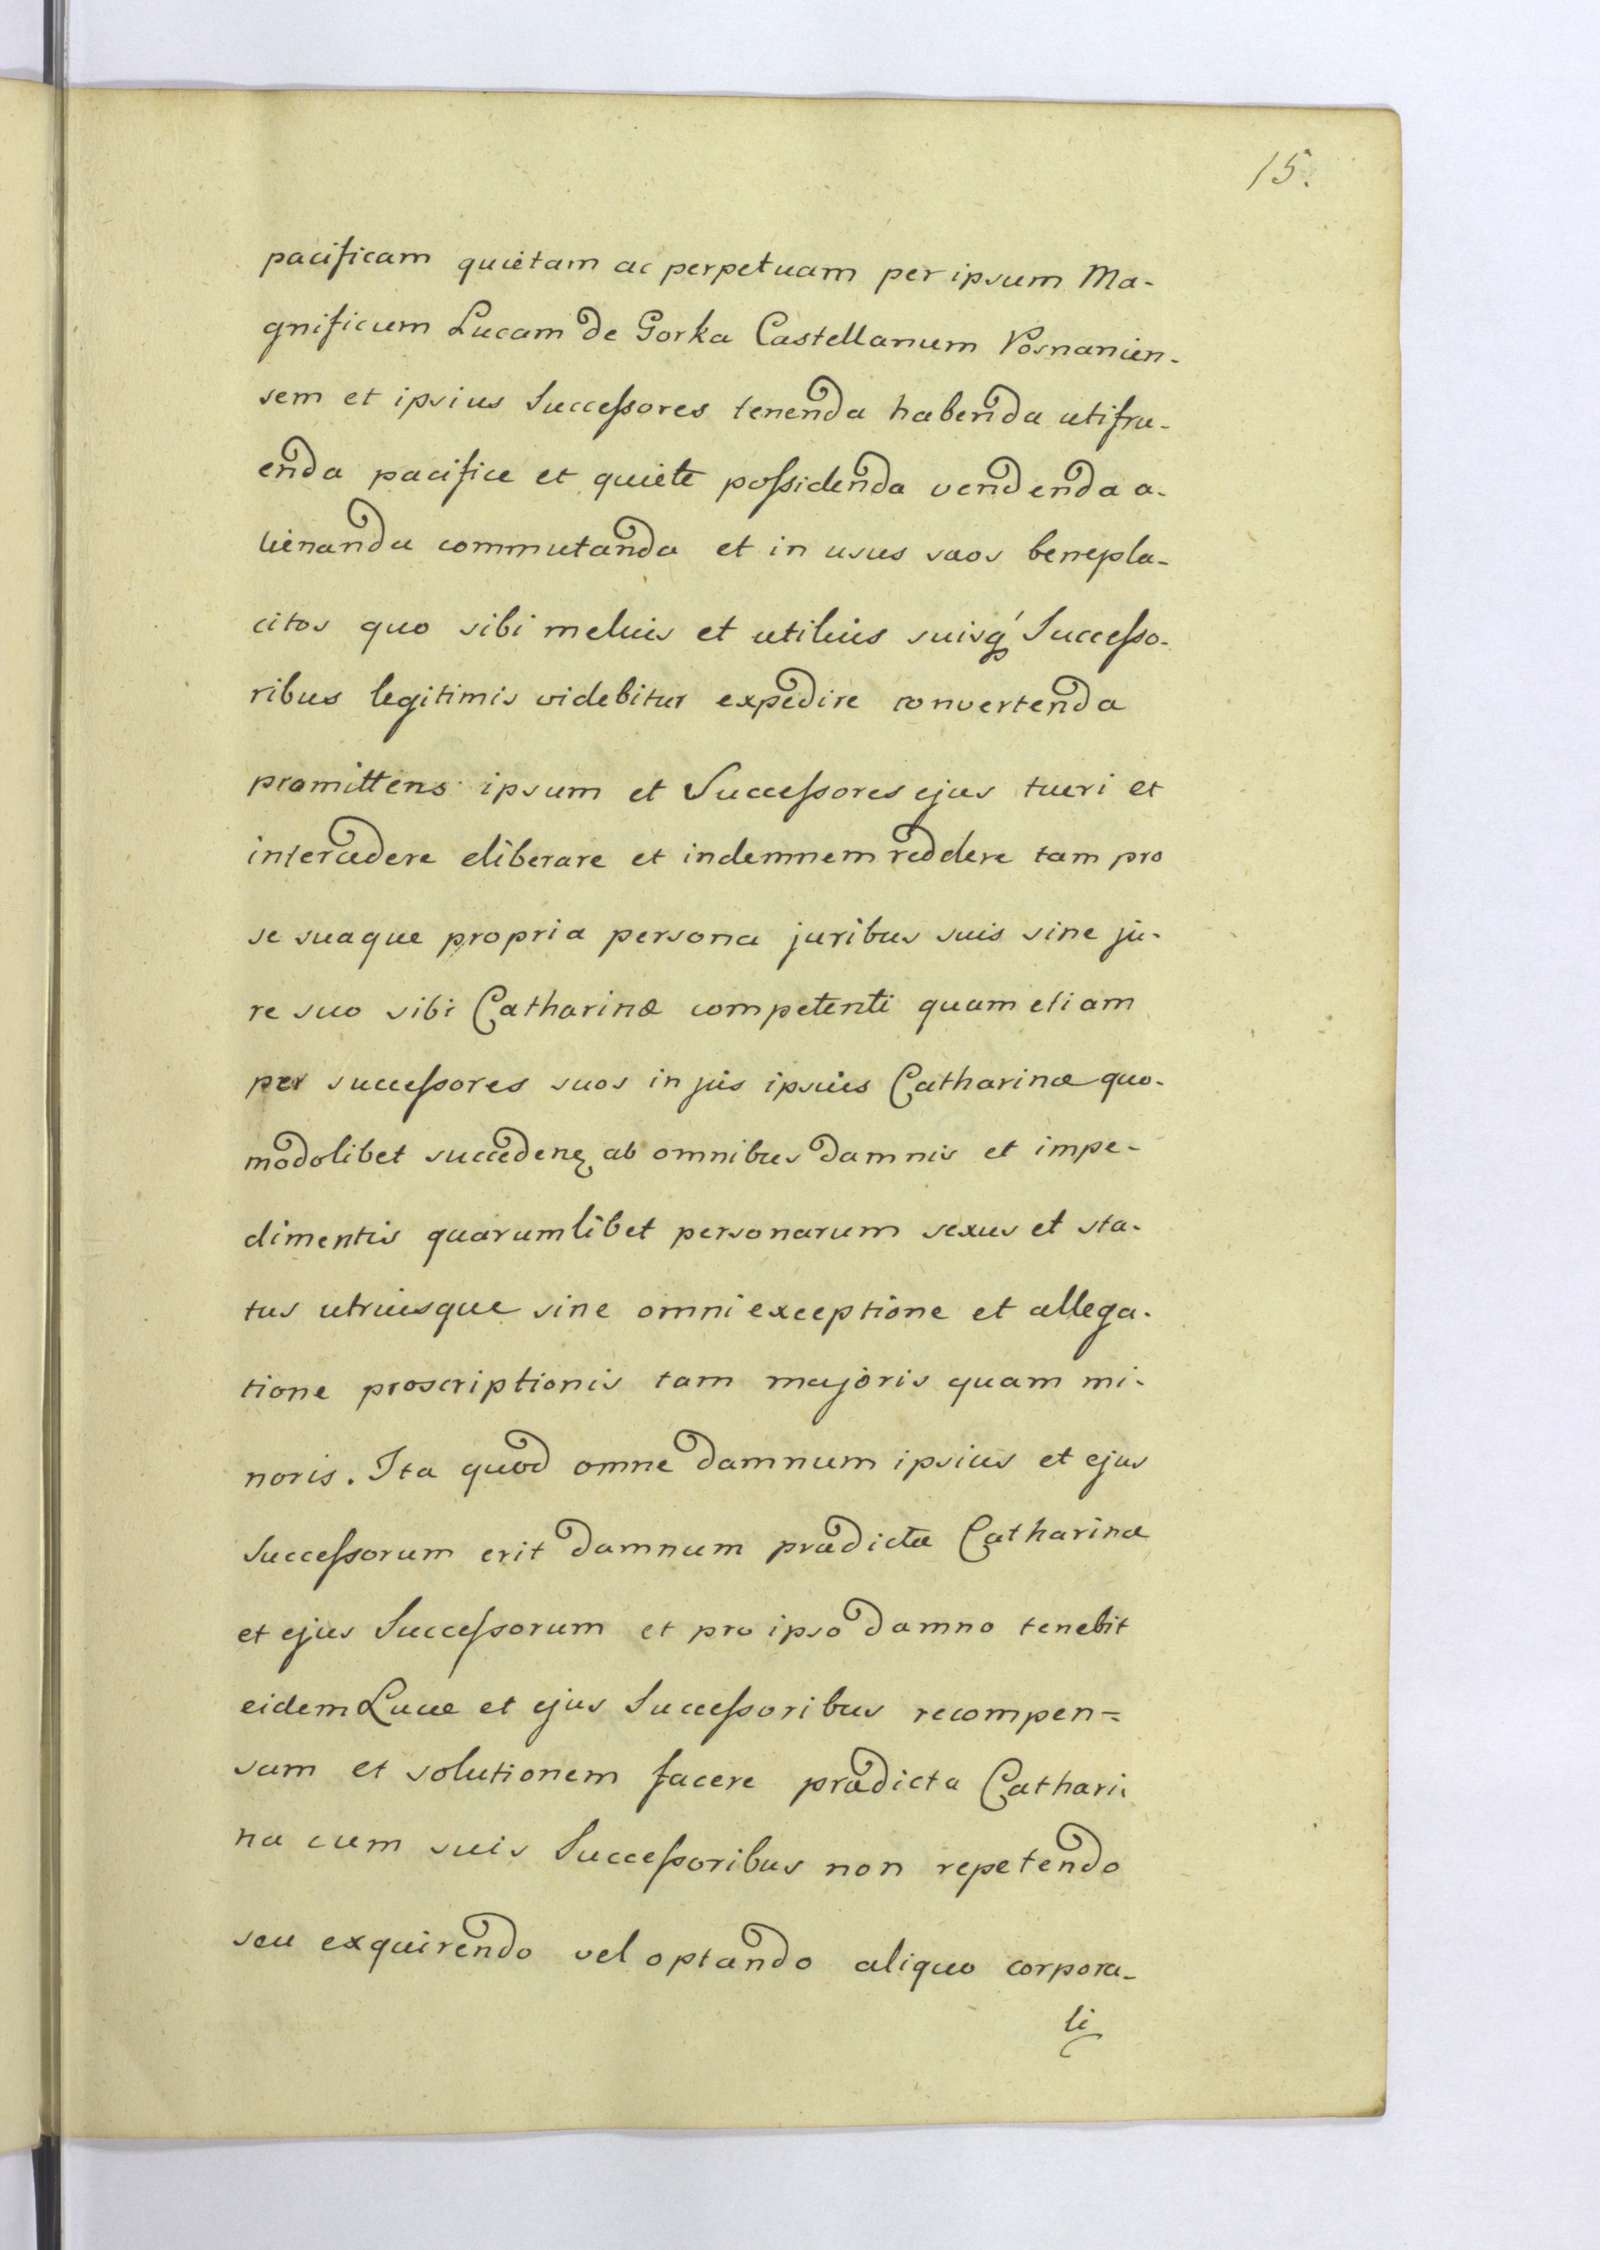 15.
pacificam quietam ac perpetuam per ipsum Ma-
gnificum Lucam de Gorka Castellanum Posnanien-
sem et ipsius Successores tenenda habenda utifru-
enda pacifice et quiete possidenda vendenda a-
lienanda commutanda et in usus suos benepla-
citos quo sibi melius et utilius suisq́ Successo-
ribus legitimis videbitur expedire convertenda
promittens ipsum et Successores ejus tueri et
intercedere eliberare et indemnem reddere tam pro
se suaque propria persona juribus suis sine ju-
re suo sibi Catharinæ competenti quam etiam
per successores suos in jus ipsius Catharinæ quo-
modolibet succedenꝫ ab omnibus damnis et impe-
dimentis quarumlibet personarum sexus et sta-
tus utriusque sine omni exceptione et allega-
tione proscriptionis tam majoris quam mi-
noris. Ita quod omne damnum ipsius et ejus
Successorum erit damnum prædictæ Catharinæ
et ejus Successorum et pro ipso damno tenebit
eidem Lucæ et ejus Successoribus recompen=
sam et solutionem facere prædicta Cathari-
na cum suis Successoribus non repetendo
seu exquirendo vel optando aliquo corpora-
li